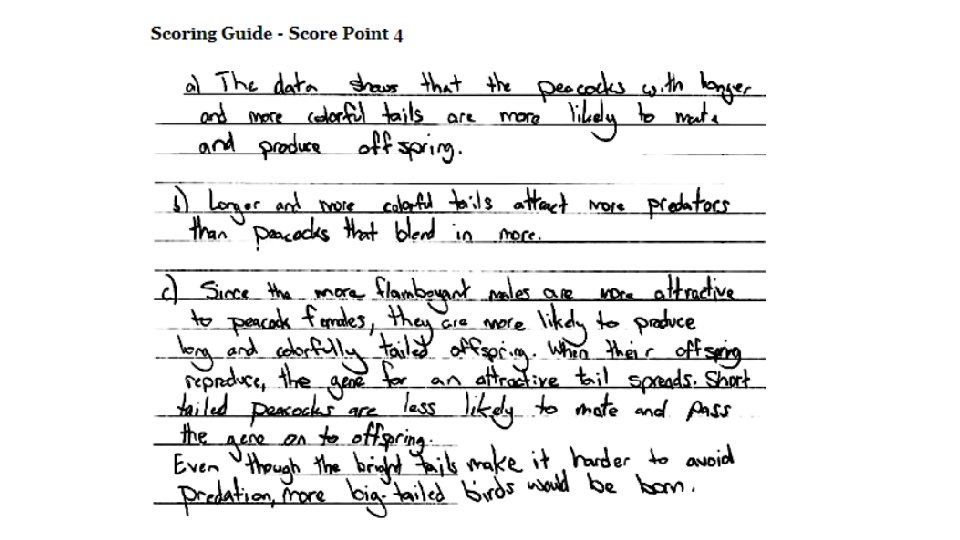 Scoring Guide - Score Point 4
a) The data shows that the peacocks with longer
and more colorful tails are more likely to mate
and produce offspring.
b) Longer and more colorful tails attract more predators
than peacocks that blend in more.
c) Since the more flamboyant males are more attractive
to peacock females, they are more likely to produce
long and colorfully tailed offspring. When their offspring
reproduce, the gene for an attractive tail spreads. Short
tailed peacocks are less likely to mate and pass
the gene on to offspring.
Even though the bright tails make it harder to avoid
predation, more big-tailed birds would be born.